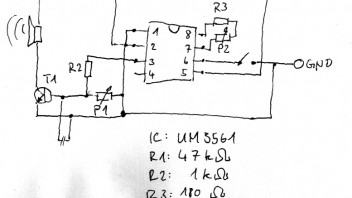 R3
1 8
P2
2 7
R2
3 6
4 5
GND
T1
P1
IC: UM3561
R1: 47kΩ
R2: 1kΩ
R3: 180Ω